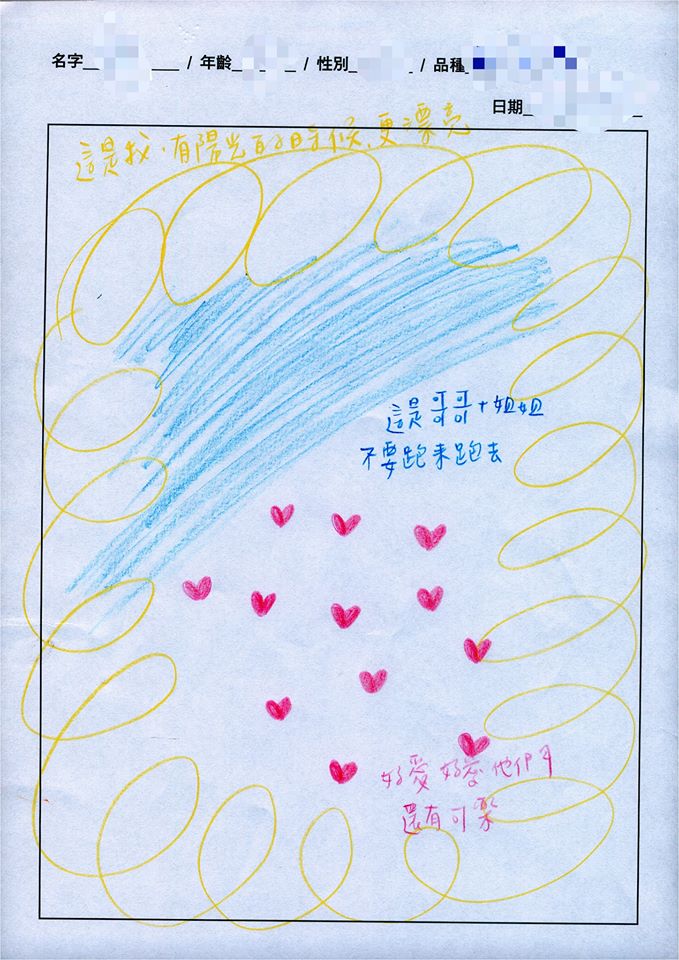 名字 / 年齡 / 性別 / 品種
日期
這是我,有陽光的時候,更漂亮
這是哥哥+姐姐
不要跑來跑去
好愛好愛他們
還有可樂